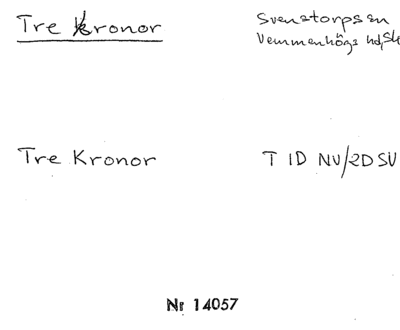 Tre Kronor
Svenstorps sn
Vemmenhögs hd, Sk
Tre Kronor
T 1D NV/2D SV
Nr 14057